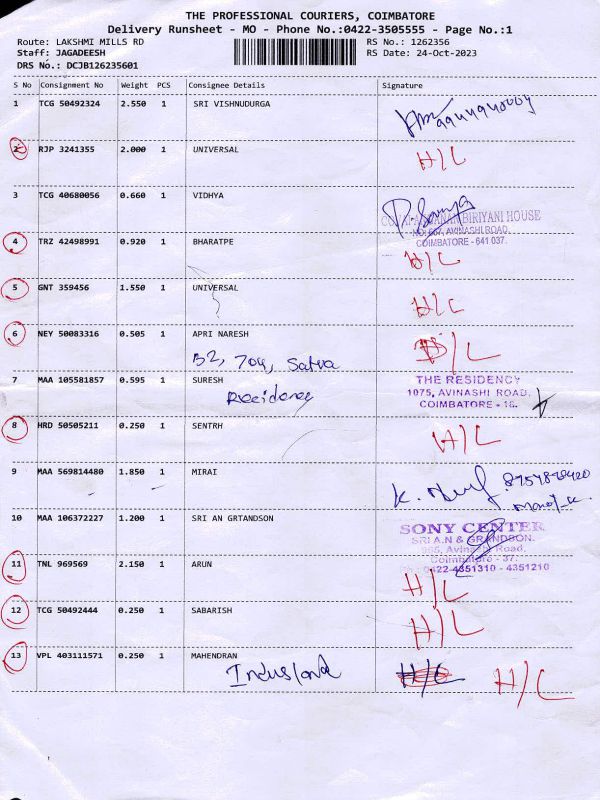 THE PROFESSIONAL COURIERS, COIMBATORE
Delivery Runsheet - MO - Phone No.:0422-3505555 - Page No.:1
Route: LAKSHMI MILLS RD RS No.: 1262356
Staff: JAGADEESH RS Date: 24-Oct-2023
DRS No.: DCJB126235601
S No Consignment No Weight PCS Consignee Details Signature
1 TCG 50492324 2.550 1 SRI VISHNUDURGA
2 RJP 3241355 2.000 1 UNIVERSAL H/C
3 TCG 40680056 0.660 1 VIDHYA
BIRIYANI HOUSE
AVINASHI ROAD,
COIMBATORE - 641 037.
4 TRZ 42498991 0.920 1 BHARATPE H/C
5 GNT 359456 1.550 1 UNIVERSAL H/C
6 NEY 50083316 0.505 1 APRI NARESH H/C
B2, 704, Satva
7 MAA 105581857 0.595 1 SURESH THE RESIDENCY
Residency 1075, AVINASHI ROAD,
COIMBATORE - 18.
8 HRD 50505211 0.250 1 SENTRH H/C
9 MAA 569814480 1.850 1 MIRAI
10 MAA 106372227 1.200 1 SRI AN GRTANDSON SONY CENTER
SRI A.N & GRANDSON.
Avinashi Road,
Coimbatore - 37.
0422-4351310 - 4351210
11 TNL 969569 2.150 1 ARUN H/C
12 TCG 50492444 0.250 1 SABARISH H/C
13 VPL 403111571 0.250 1 MAHENDRAN H/C H/C